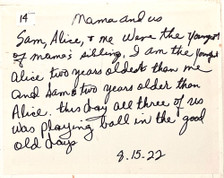 14
Mama and us
Sam, Alice, & me were the youngest
of mama's sibling. I am the youngest
Alice two years oldest than me
and Sam two years older than
Alice. this day all three of us
was playing ball in the good
old days
8.15.22